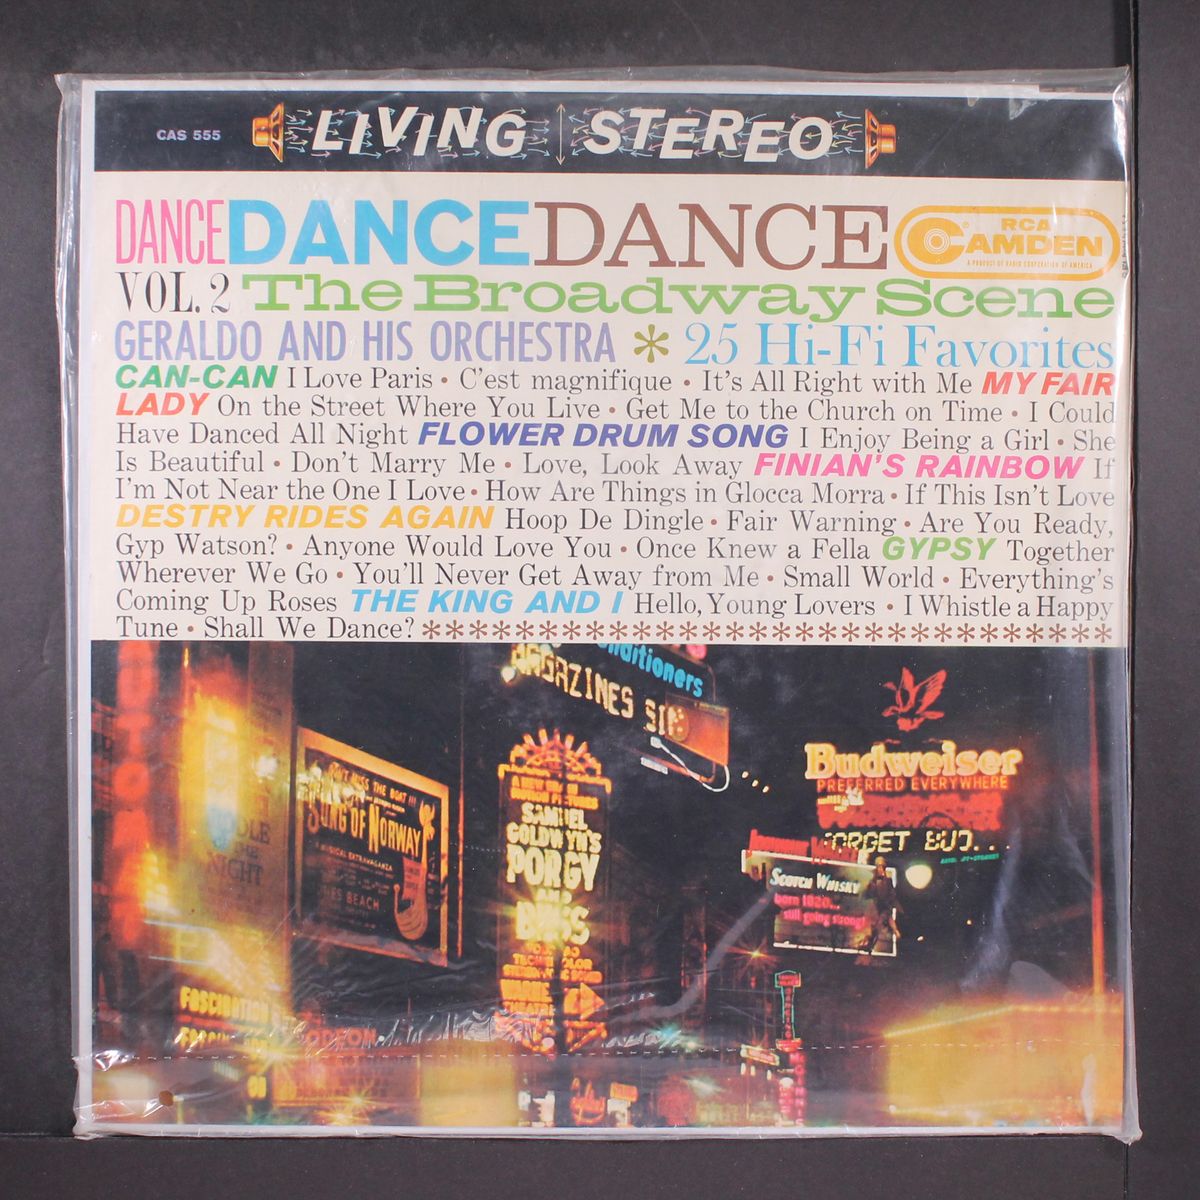 CAS 555
LIVING STEREO
DANCE DANCE DANCE
RCA
CAMDEN
A PRODUCT OF RADIO CORPORATION OF AMERICA
VOL. 2 The Broadway Scene
GERALDO AND HIS ORCHESTRA * 25 Hi-Fi Favorites
CAN-CAN I Love Paris • C'est magnifique • It's All Right with Me MY FAIR
LADY On the Street Where You Live • Get Me to the Church on Time • I Could
Have Danced All Night FLOWER DRUM SONG I Enjoy Being a Girl • She
Is Beautiful • Don't Marry Me • Love, Look Away FINIAN'S RAINBOW If
I'm Not Near the One I Love • How Are Things in Glocca Morra • If This Isn't Love
DESTRY RIDES AGAIN Hoop De Dingle • Fair Warning • Are You Ready,
Gyp Watson? • Anyone Would Love You • Once Knew a Fella GYPSY Together
Wherever We Go • You'll Never Get Away from Me • Small World • Everything's
Coming Up Roses THE KING AND I Hello, Young Lovers • I Whistle a Happy
Tune • Shall We Dance? *****************************
nditioners
MAGAZINES
DON'T MISS THE BOAT!!!
SONG OF NORWAY
MUSICAL EXTRAVAGANZA
BEACH
NIGHT
SAMUEL
GOLDWYN'S
PORGY
AND
BESS
Budweiser
PREFERRED EVERYWHERE
FORGET BUD...
SCOTCH WHISKY
born 1820...
still going strong!
FASCINATION